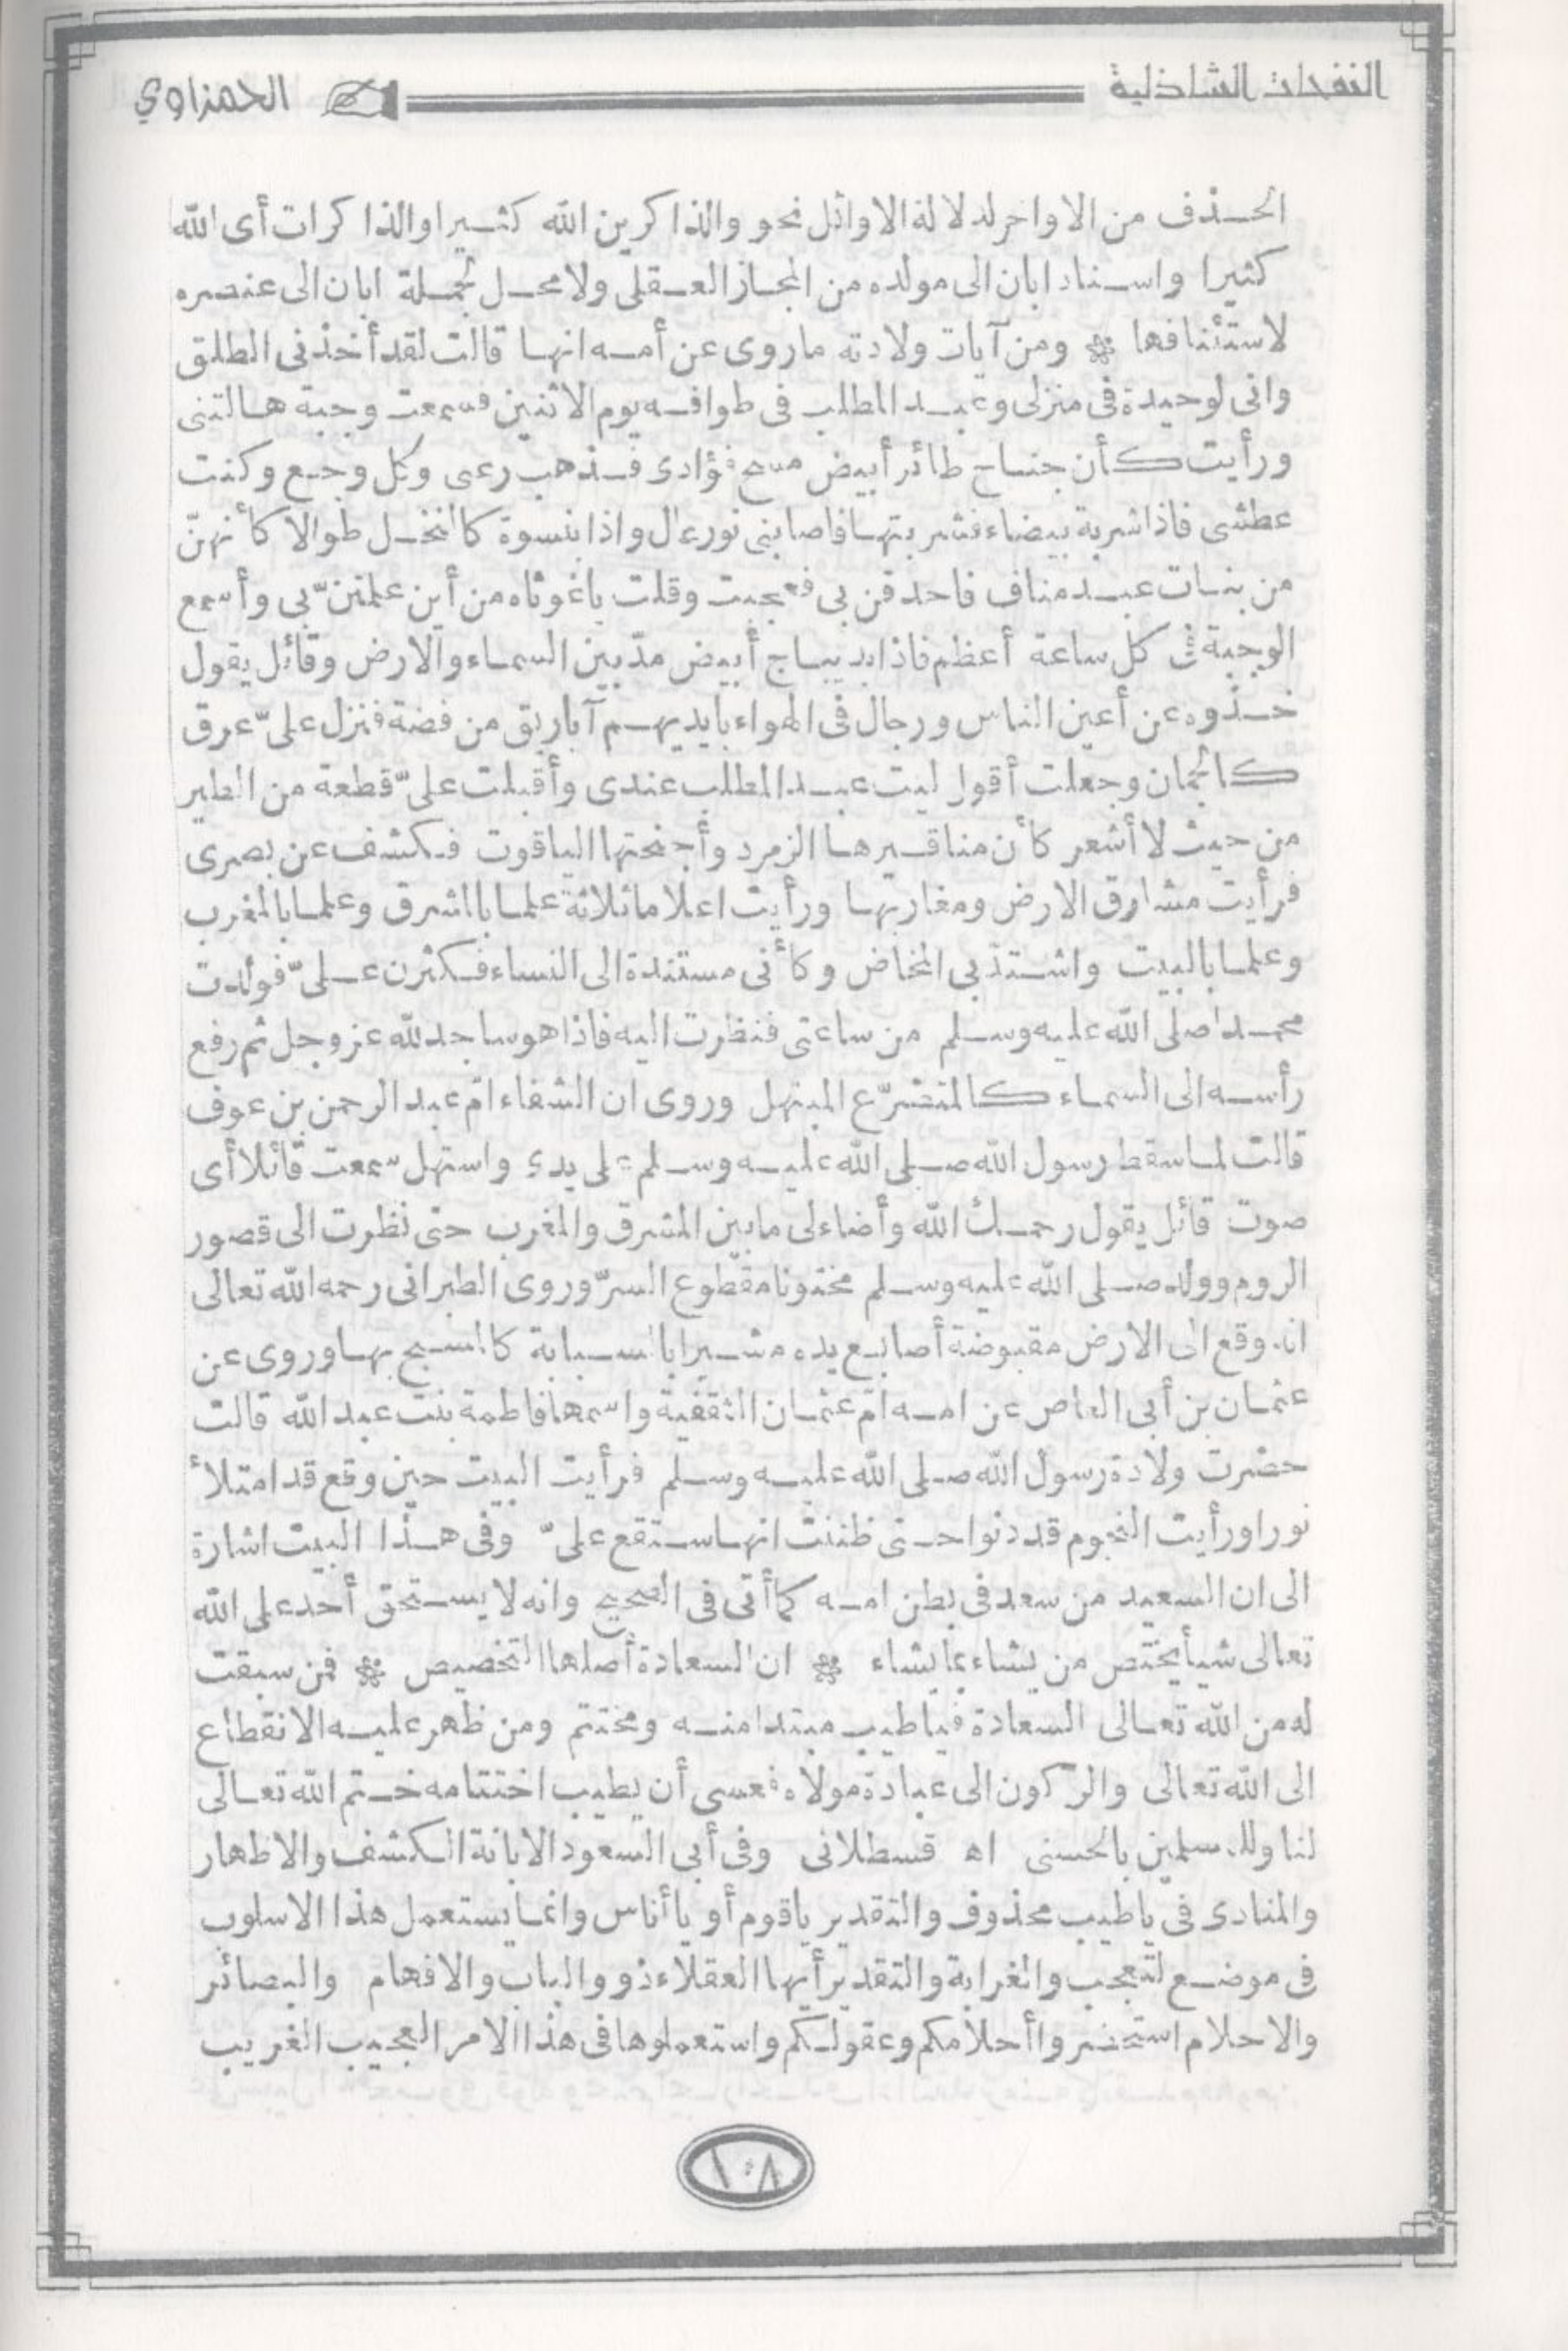 النفحات الشاذلية
الحمزاوي
الحذف من الاواخر لدلالة الاوائل نحو والذاكرين الله كثيرا والذاكرات أى الله
كثيرا واسناد ابان الى مولده من المجاز العقلى ولا محل لجملة ابان الى عنصره
لاستئنافها * ومن آيات ولادته ماروى عن أمه انها قالت لقد أخذنى الطلق
وانى لوحيدة فى منزلى وعبد المطلب فى طوافه يوم الاثنين فسمعت وجبة هالتنى
ورأيت كأن جناح طائر أبيض مسح فؤادى فذهب رعبى وكل وجع وكنت
عطشى فاذا شربة بيضاء فشربتها فاصابنى نور عال واذا بنسوة كالنخل طوالا كأنهنّ
من بنات عبد مناف فاحدقن بى فعجبت وقلت ياغوثاه من أين علمتنّ بى وأسمع
الوجبة كل ساعة أعظم فاذا بديباج أبيض مدّ بين السماء والارض وقائل يقول
خذوه عن أعين الناس ورجال فى الهواء بايديهم آباريق من فضة فنزل علىّ عرق
كالجمان وجعلت أقول ليت عبد المطلب عندى وأقبلت علىّ قطعة من الطير
من حيث لا أشعر كأن مناقيرها الزمرد وأجنحتها الياقوت فكشف عن بصرى
فرأيت مشارق الارض ومغاربها ورأيت اعلاما ثلاثة علما بالشرق وعلما بالمغرب
وعلما بالبيت واشتدّ بى المخاض وكأنى مستندة الى النساء فكثرن علىّ فولدت
محمدا صلى الله عليه وسلم من ساعتى فنظرت اليه فاذا هو ساجد لله عز وجل ثم رفع
رأسه الى السماء كالمتضرّع المبتهل وروى ان الشفاء امّ عبد الرحمن بن عوف
قالت لما سقط رسول الله صلى الله عليه وسلم على يدى واستهل سمعت قائلا أى
صوت قائل يقول رحمك الله وأضاء لى ما بين المشرق والمغرب حتى نظرت الى قصور
الروم وولد صلى الله عليه وسلم مختونا مقطوع السرّ وروى الطبرانى رحمه الله تعالى
انه وقع الى الارض مقبوضة أصابع يده مشيرا بالسبابة كالمسبح بها وروى عن
عثمان بن أبى العاص عن امه امّ عثمان الثقفية واسمها فاطمة بنت عبد الله قالت
حضرت ولادة رسول الله صلى الله عليه وسلم فرأيت البيت حين وقع قد امتلأ
نورا ورأيت النجوم قد دنوا حتى ظننت انها ستقع علىّ وفى هذا البيت اشارة
الى ان السعيد من سعد فى بطن امه كما أتى فى الصحيح وانه لا يستحق أحد على الله
تعالى شيأ يختص من يشاء بما يشاء * ان السعادة أصلها التخصيص * فمن سبقت
له من الله تعالى السعادة فياطيب مبتدا منه ومختتم ومن ظهر عليه الانقطاع
الى الله تعالى والركون الى عبادة مولاه فعسى أن يطيب اختتامه ختم الله تعالى
لنا وللمسلمين بالحسنى اه قسطلانى وفى أبى السعود الابانة الكشف والاظهار
والمنادى فى ياطيب محذوف والتقدير ياقوم أو ياأناس وانما يستعمل هذا الاسلوب
فى موضع لتعجب والغرابة والتقدير أيها العقلاء ذوو الباب والافهام والبصائر
والاحلام استحضروا أحلامكم وعقولكم واستعملوها فى هذا الامر العجيب الغريب
١٠٨